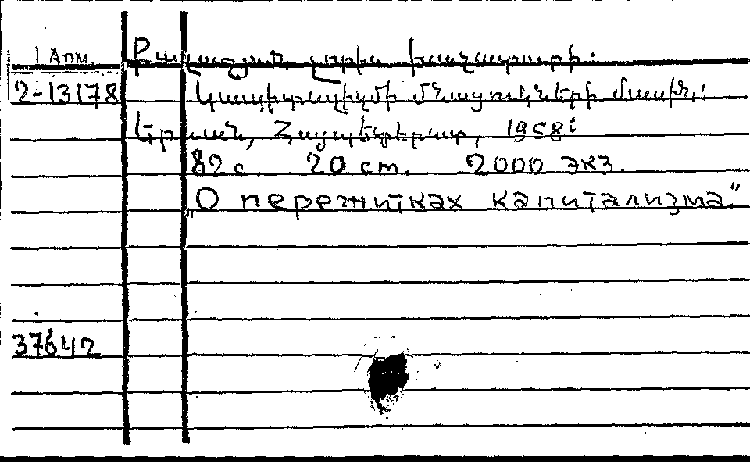 1 Арм.
2-13178
Խաչատուրի:
Կապիտալիզմի մնացուկների մասին:
Երևան, Հայպետհրատ, 1958:
82 с. 20 cm. 2000 экз.
„О пережитках капитализма."
37642